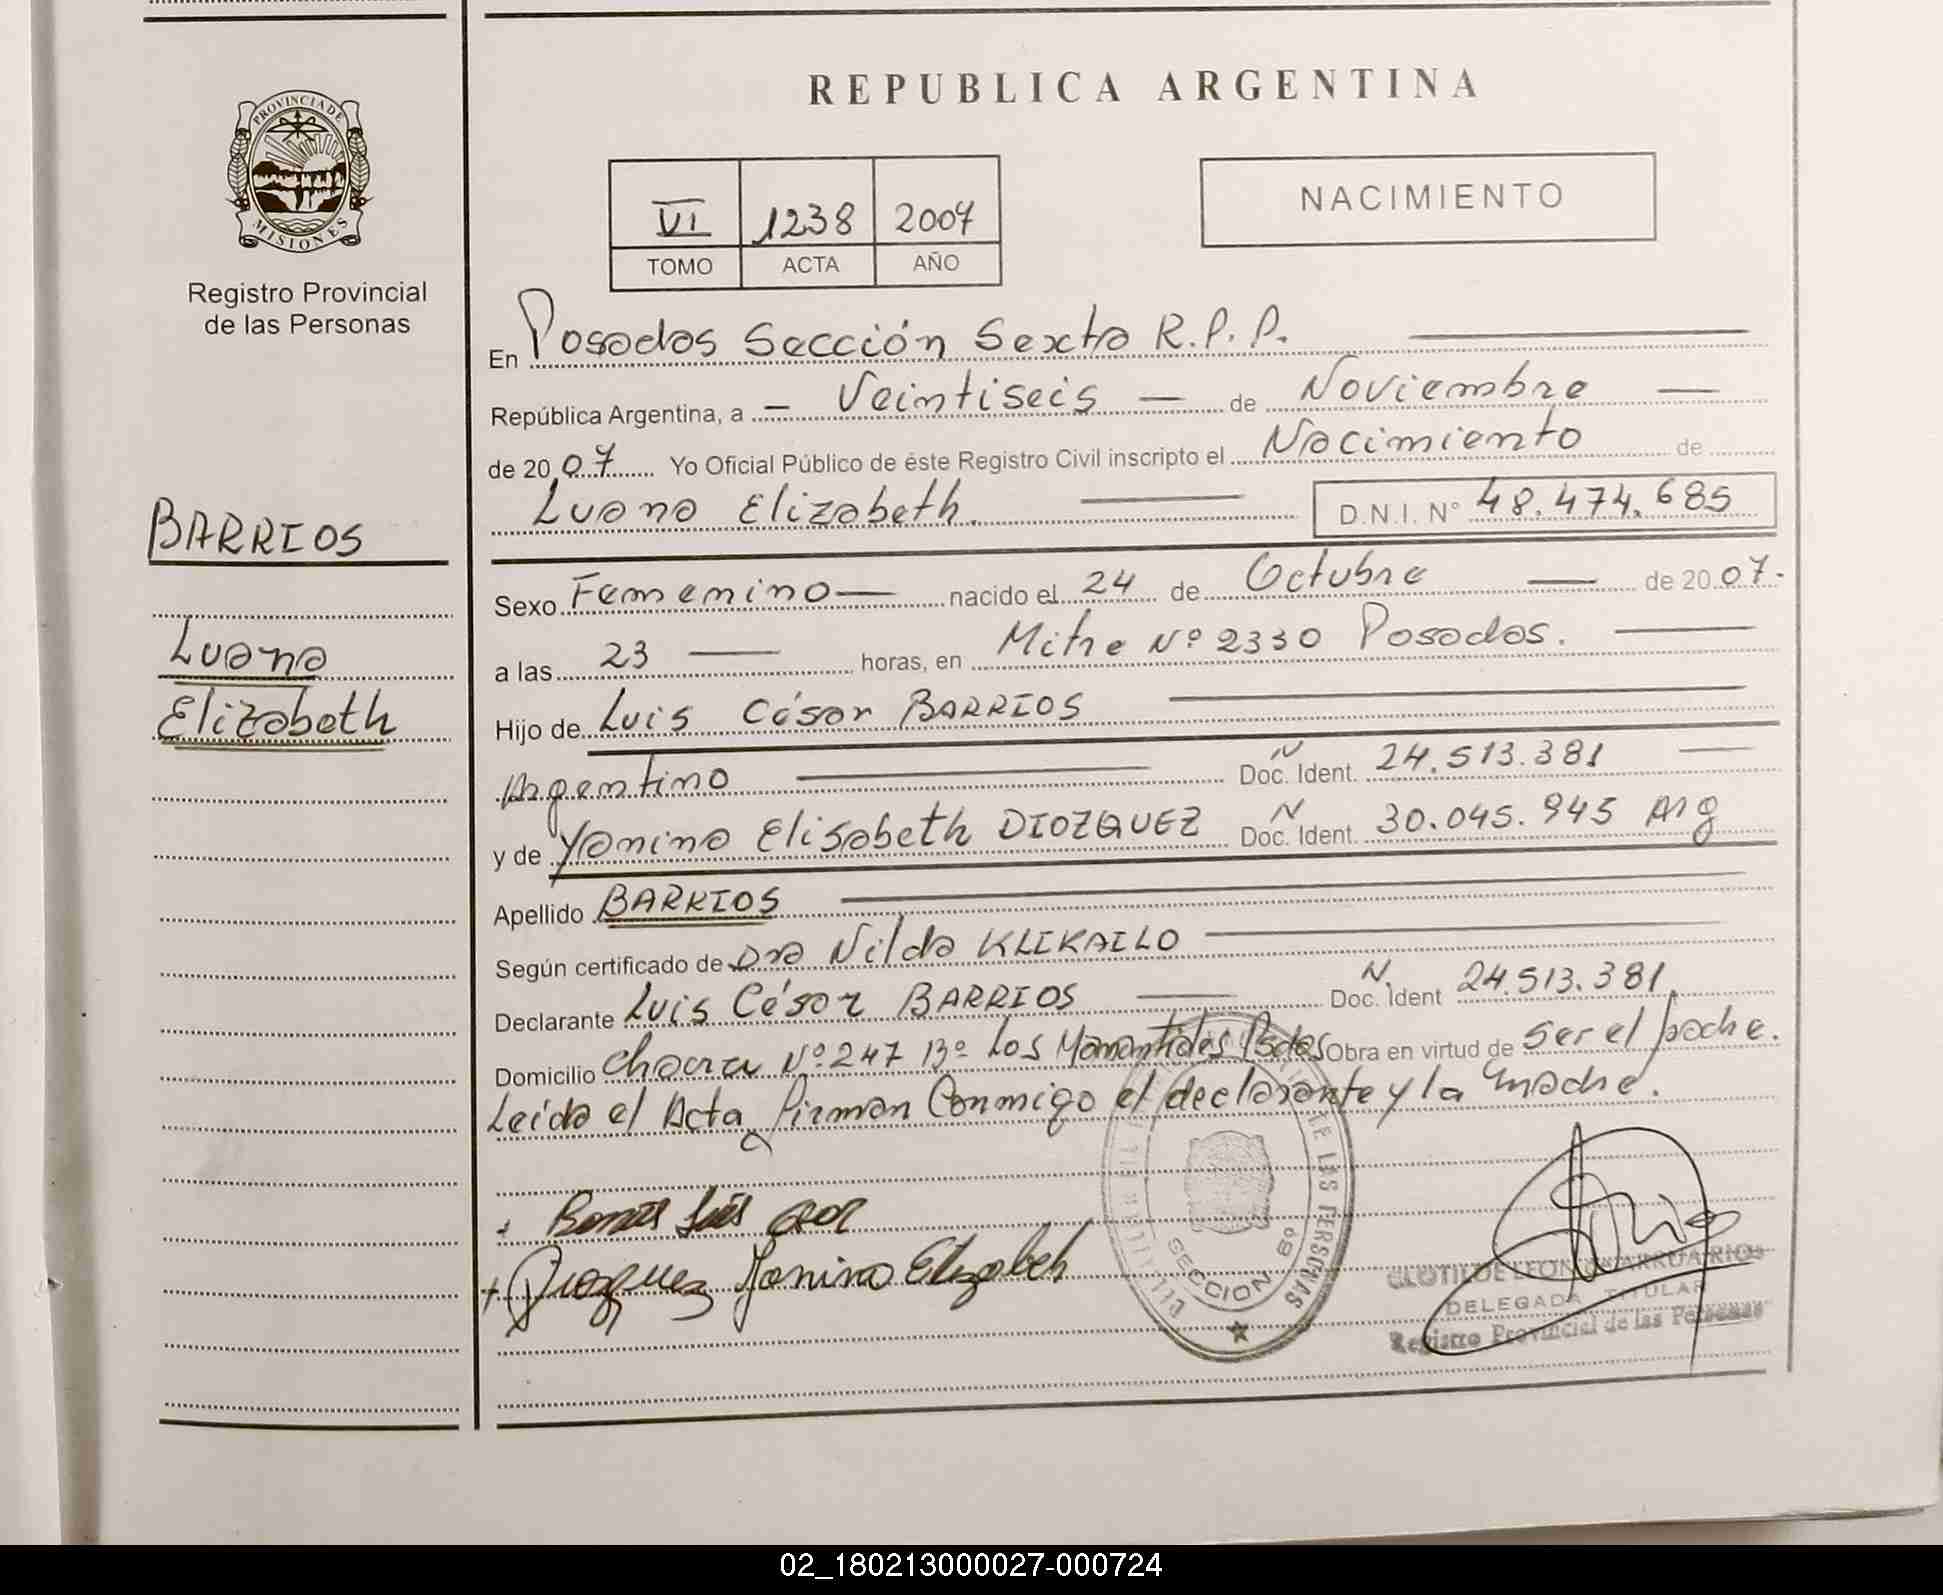 REPUBLICA ARGENTINA
PROVINCIA DE
MISIONES
Registro Provincial
de las Personas
VI 1238 2007
TOMO ACTA AÑO
NACIMIENTO
BARRIOS
Luana
Elizabeth
En Posadas Sección Sexta R.P.P.
República Argentina, a - Veintiseis - de Noviembre
de 20 07 Yo Oficial Público de éste Registro Civil inscripto el Nacimiento de
Luana Elizabeth. D.N.I. N° 48.474.685
Sexo Femenino nacido el 24 de Octubre de 20 07.
a las 23 horas, en Mitre Nº 2330 Posadas.
Hijo de Luis César BARRIOS
Argentino N Doc. Ident. 24.513.381
y de Yanina Elisabeth DIOZQUEZ N Doc. Ident. 30.045.945 Arg
Apellido BARRIOS
Según certificado de Dra Nilda KLEKAILO
Declarante Luis César BARRIOS N. Doc. Ident 24.513.381.
Domicilio Chacra Nº 247 Bº Los Manantiales Psdas Obra en virtud de Ser el padre.
Leída el Acta, firman Conmigo el declarante y la madre.
Luis
Diozquez Yanina Elizabeh
DE LAS PERSONAS
SECCION 6º
CLOTILDE LEON
DELEGADA TITULAR
Registro Provincial de las Personas
02_180213000027-000724